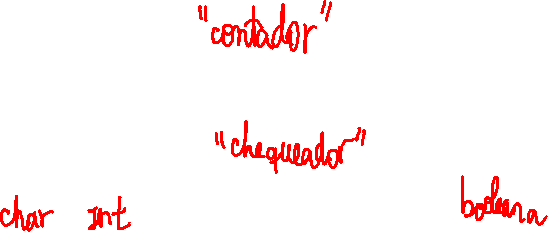 "contador"
"chequeador"
char int booleana